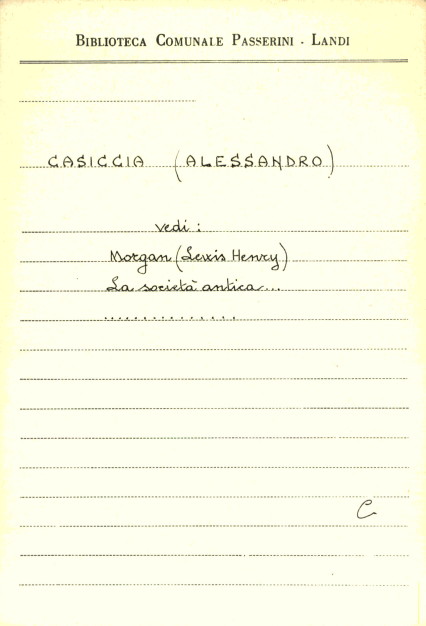 BIBLIOTECA COMUNALE PASSERINI - LANDI
CASICCIA (ALESSANDRO)
vedi:
Morgan (Lewis Henry)
La società antica...
...............
C